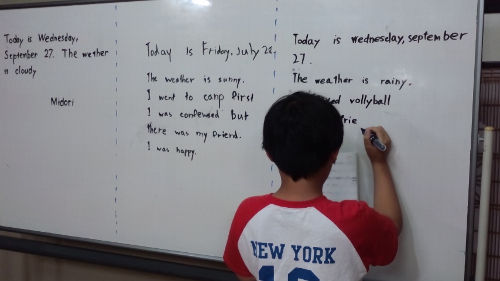 Today is Wednesday,
September 27. The wether
is cloudy
Midori
Today Is Friday, July 28.
The weather is sunny.
I went to camp first
I was confewsed but
there was my friend.
I was happy.
Today is wednesday, september
27.
The weather is rainy.
vollyball
frie
NEW YORK